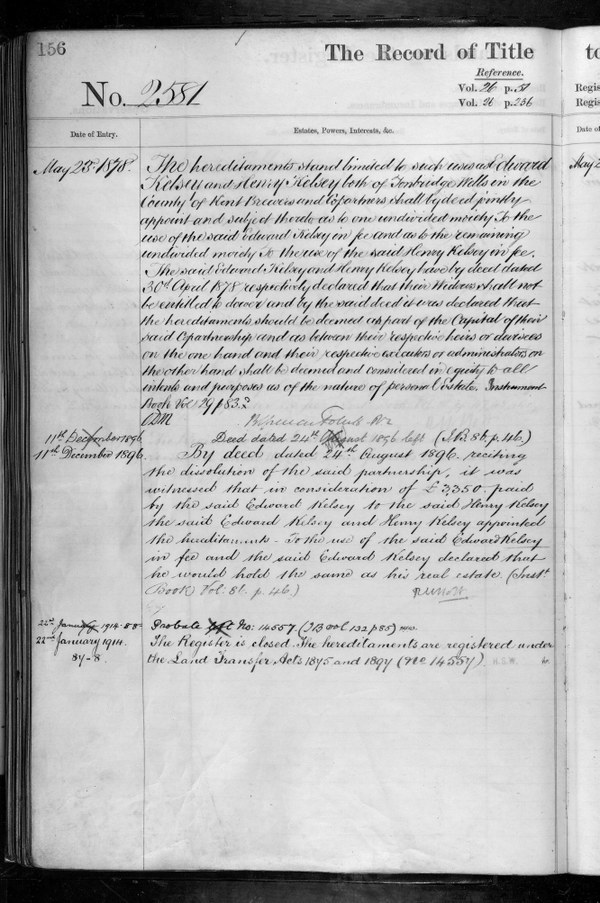 156
The Record of Title
to
Reference.
No. 2581
Vol. 26 p. 51
Regis
Vol. 26 p. 256
Regis
Date of Entry.
Estates, Powers, Interests, &c.
Date of
May 23rd 1878.
The hereditaments stand limited to such uses as Edward
May 2
Kelsey and Henry Kelsey both of Tonbridge Wells in the
County of Kent Brewers and Copartners shall by deed jointly
appoint and subject thereto as to one undivided moiety To the
use of the said Edward Kelsey in fee and as to the remaining
undivided moiety To the use of the said Henry Kelsey in fee.
The said Edward Kelsey and Henry Kelsey have by deed dated
30th April 1878 respectively declared that their Widows shall not
be entitled to dower and by the said deed it was declared that
the hereditaments should be deemed as part of the Capital of their
said Copartnership and as between their respective heirs or devisees
on the one hand and their respective executors or administrators on
the other hand shall be deemed and considered in equity to all
intents and purposes as of the nature of personal Estate. Instrument
Book Vol 29 p 83.
11th December 1896
Deed dated 24th August 1896 left (I.B. 86. p. 46.)
11th December 1896
By deed dated 24th August 1896. reciting
the dissolution of the said partnership, it was
witnessed that in consideration of £3,350. paid
by the said Edward Kelsey to the said Henry Kelsey
the said Edward Kelsey and Henry Kelsey appointed
the heraditaments - To the use of the said Edward Kelsey
in fee and the said Edward Kelsey declared that
he would hold the same as his real estate. (Inst.
Book Vol: 86. p. 46.)
22nd January 1914. 88
Probate left No: 14557 (I B vol 132 p 85)
22nd January 1914.
The Register is closed. The hereditaments are registered under
84-8.
the Land Transfer Acts 1875 and 1897 (No 14557)
H.S.W.